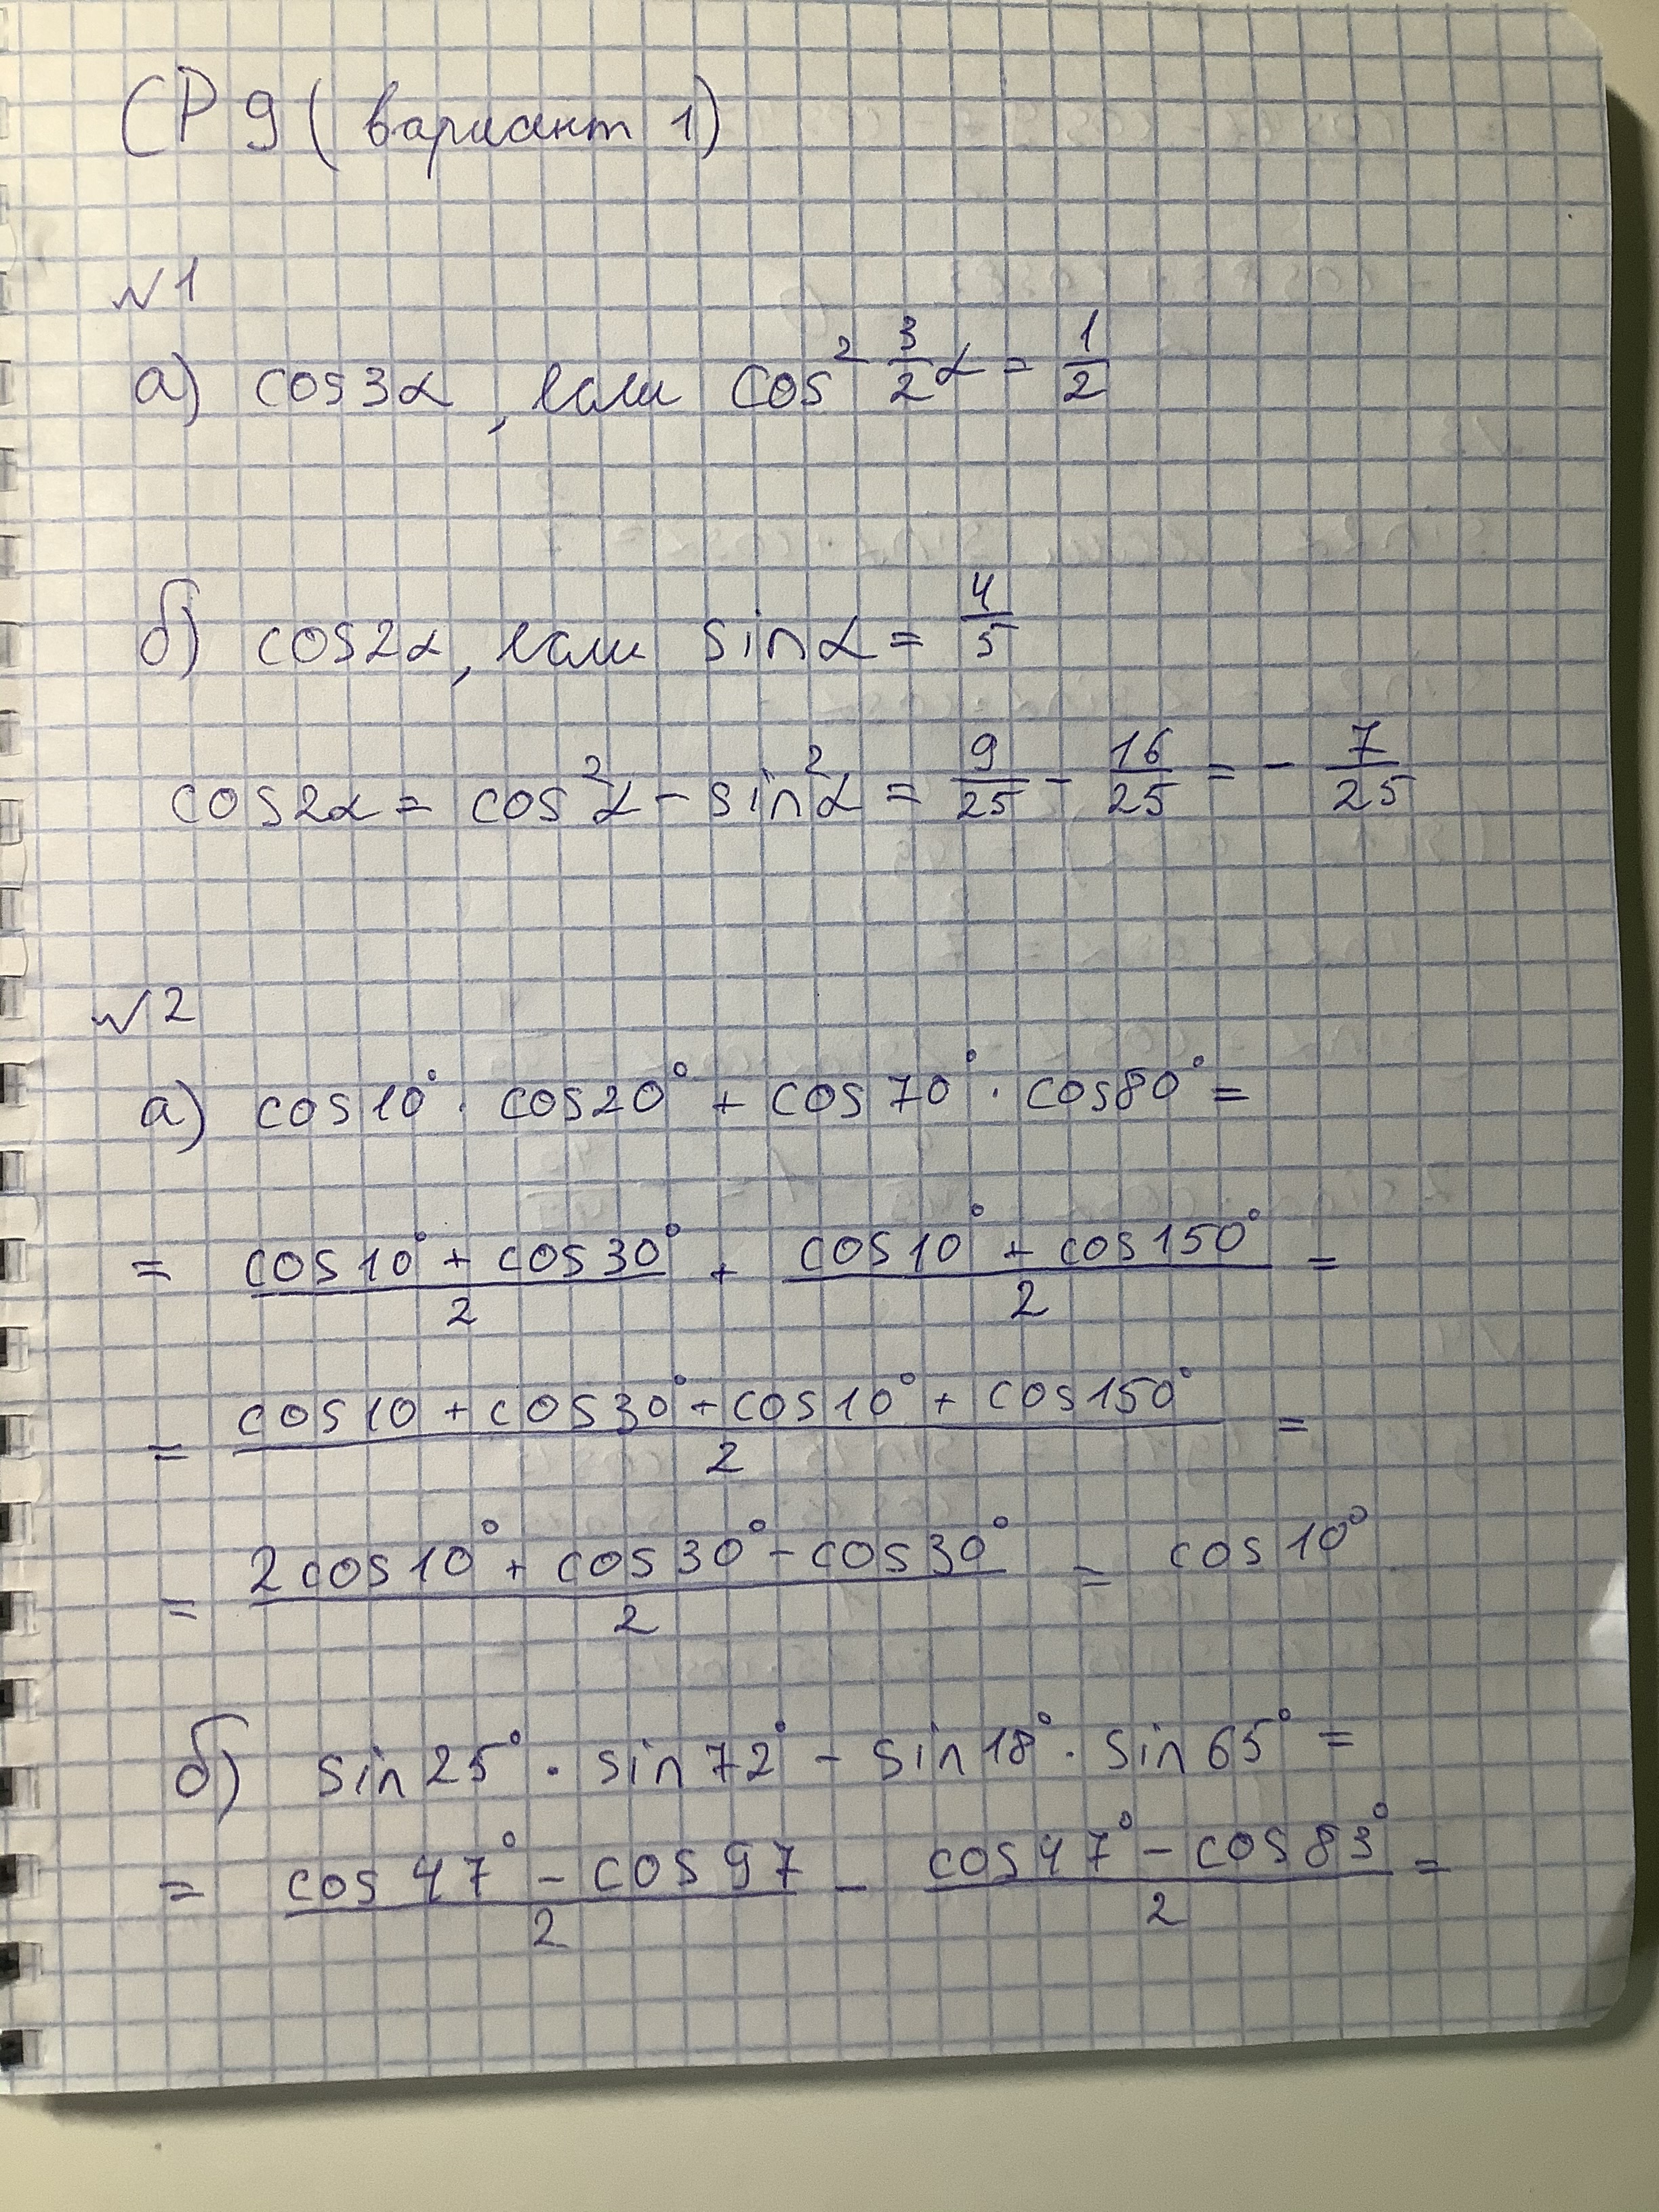 СР 9 (вариант 1)
№1
а) cos3α, если cos² 3/2 α = 1/2
б) cos2α, если sinα = 4/5
cos2α = cos²α - sin²α = 9/25 - 16/25 = - 7/25
№2
а) cos10° · cos20° + cos70° · cos80° =
= (cos10° + cos30°)/2 + (cos10° + cos150°)/2 =
= (cos10 + cos30° + cos10° + cos150°)/2 =
= (2cos10° + cos30° - cos30°)/2 = cos10°
б) sin25° · sin72° - sin18° · sin65° =
= (cos47° - cos97)/2 - (cos47° - cos83°)/2 =